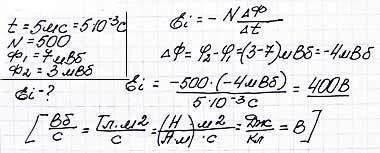 t = 5мс = 5·10⁻³с
N = 500
Ф₁ = 7мВб
Ф₂ = 3мВб
Ɛi - ?
Ɛi = - NΔФ/Δt
ΔФ = φ₂-φ₁ = (3-7)мВб = -4мВб
Ɛi = -500·(-4мВб)/5·10⁻³с = 400В
[Вб/с = Тл·м2/с = (Н/А·м)·м2/с = Дж/Кл = В]